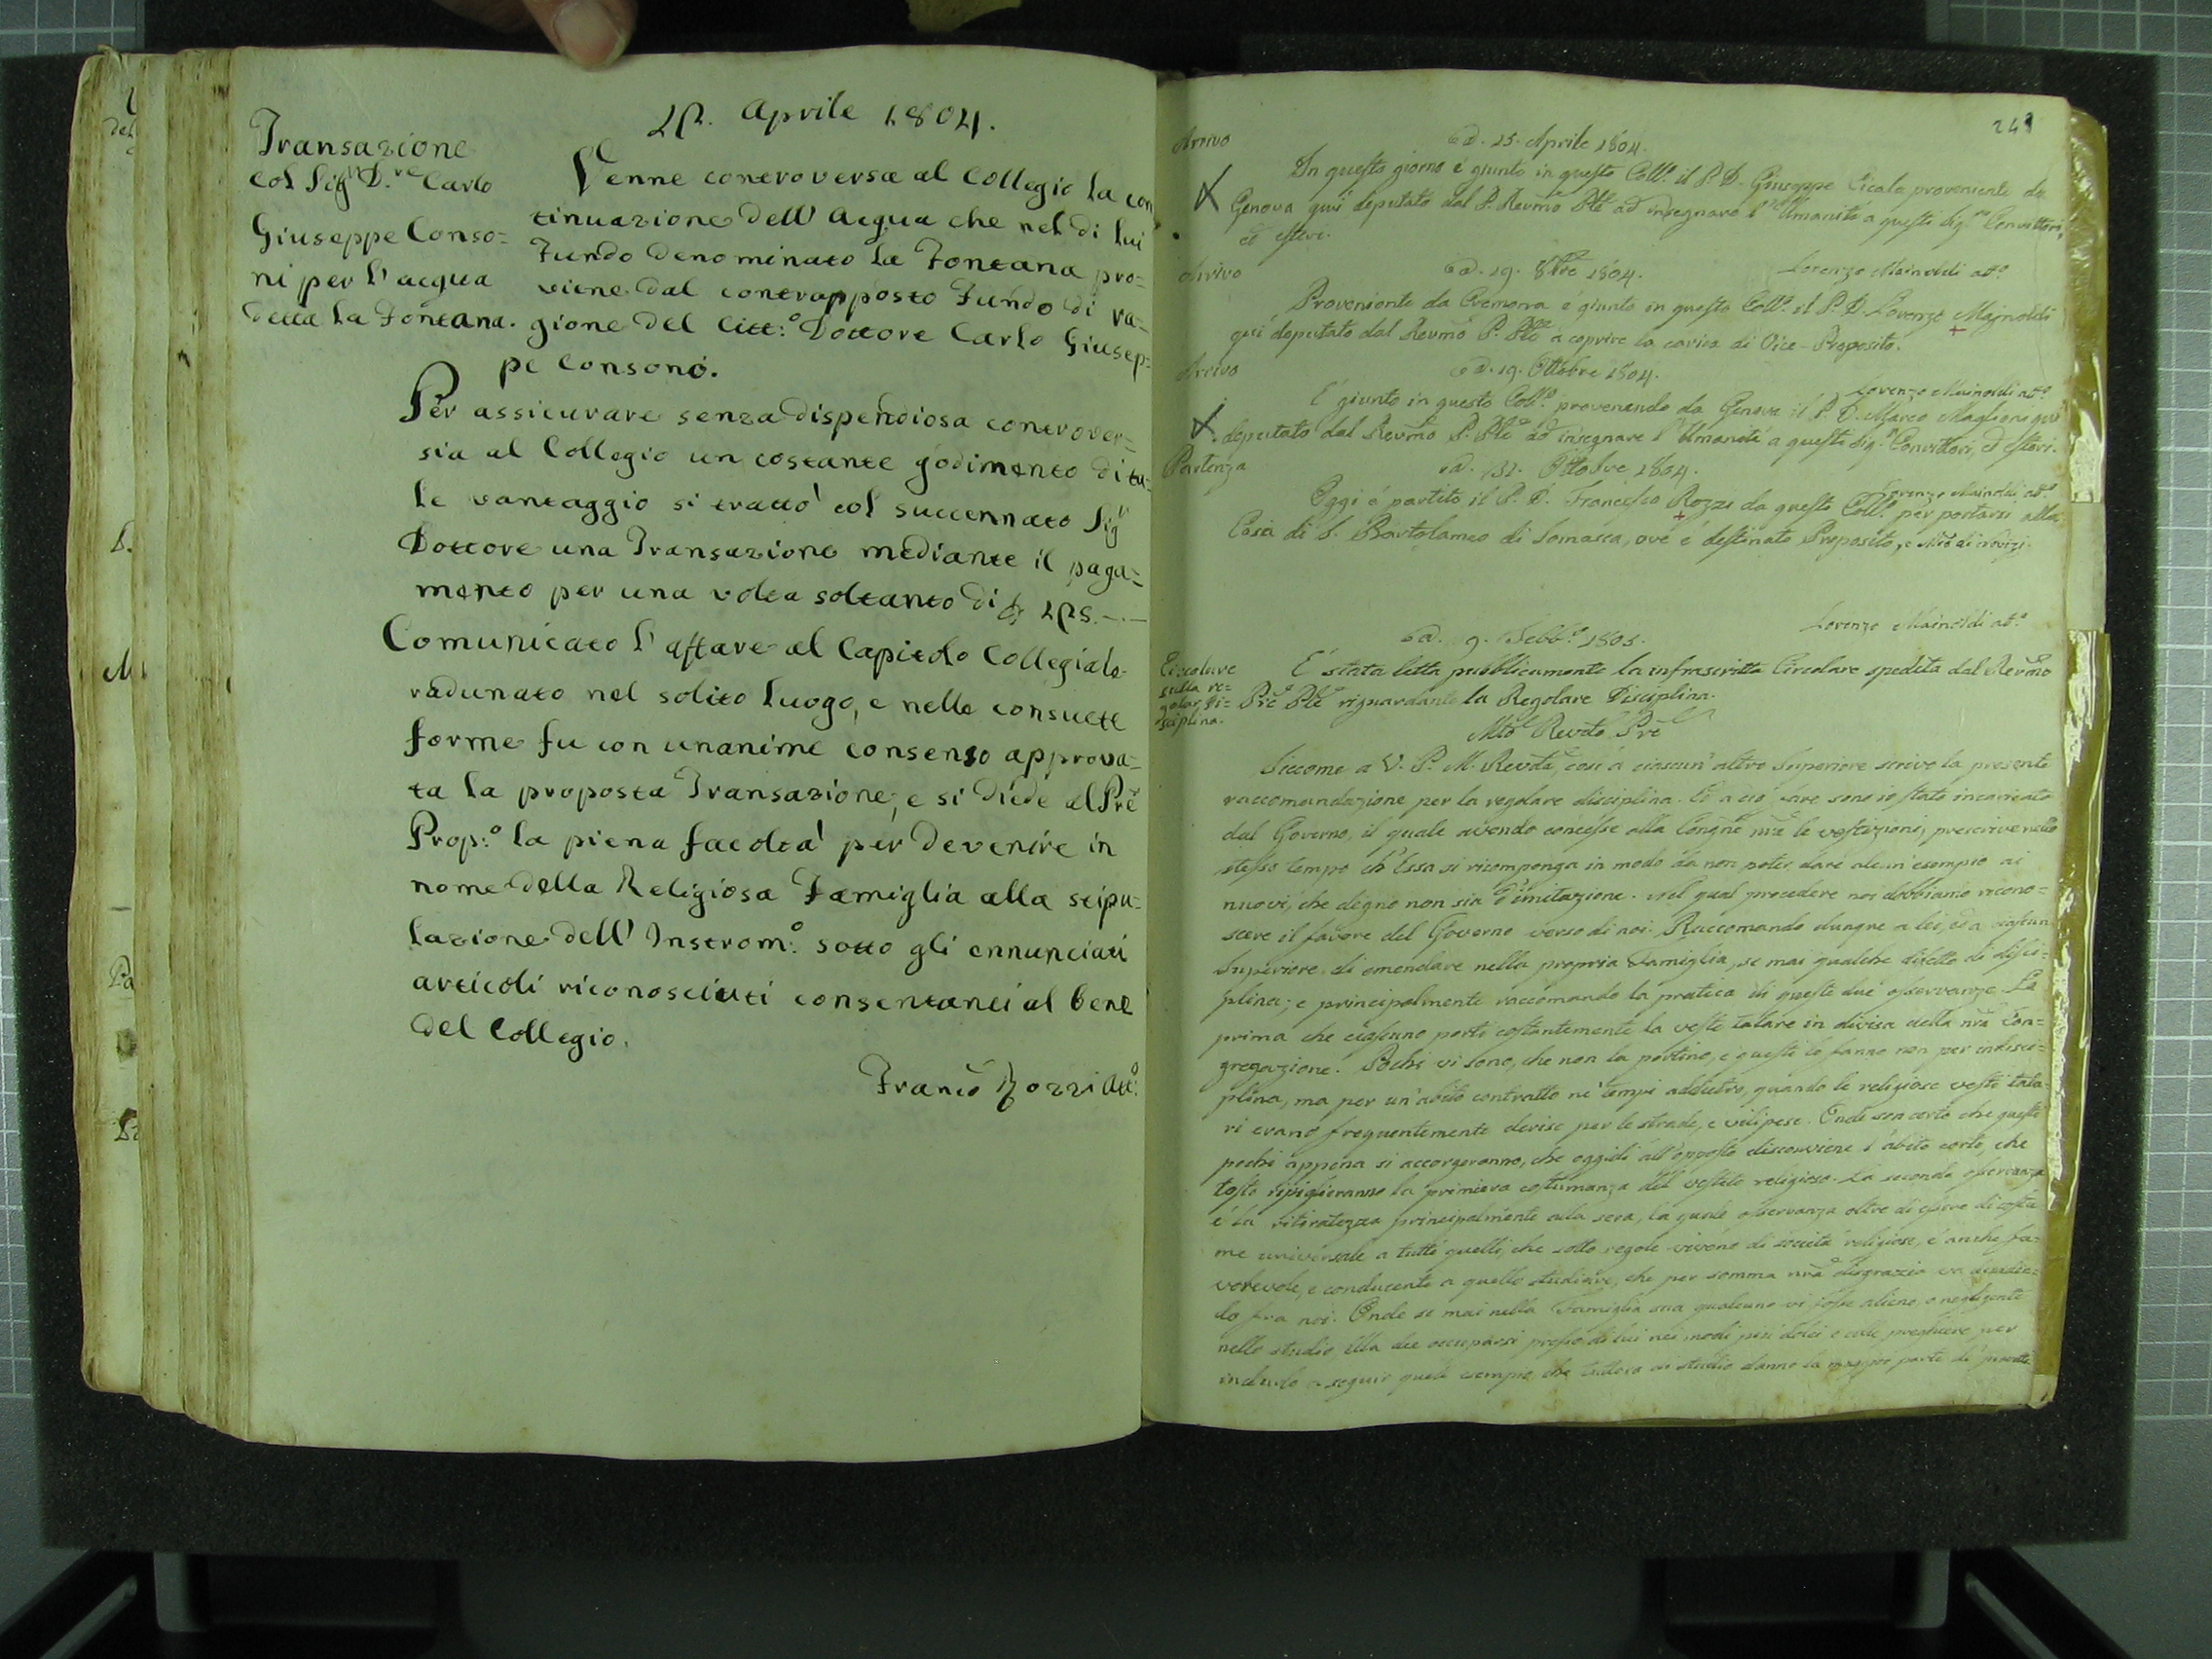 Transazione
col Sig.r D.re Carlo
Giuseppe Conso=
ni per l'acqua
detta la Fontana.
Aprile 1804.
Venne controversa al Collegio la con
tinuazione dell'Acqua che nel di lui
Fundo denominato la Fontana pro=
viene dal contrapposto Fundo di ra=
gione del Citt:o Dottore Carlo Giusep=
pe Consoni.
Per assicurare senza dispendiosa controver=
sia al Collegio un costante godimento di ta=
le vantaggio si trattò col succennato Sig.r
Dottore una Transazione mediante il paga=
mento per una volta soltanto di
Comunicato l'affare al Capitolo Collegiale
radunato nel solito luogo, e nelle consuete
forme fu con unanime consenso approva=
ta la proposta Transazione, e si diede al Prē
Prop:o la piena facoltà per devenire in
nome della Religiosa Famiglia alla stipu=
lazione dell'Instrom:o sotto gli ennunciati
articoli riconosciuti consentanei al bene
del Collegio.
Franco Rozzi Att:o
Arrivo
Ad. 25. Aprile 1804.
In questo giorno è giunto in questo Coll.o il P. D. Giuseppe Cicala proveniente da
Genova qui deputato dal P. Revmō Plē ad insegnare l'Umanità a questi Sig.ri Convittori,
ed esteri.
Lorenzo Mainoldi att.o
Arrivo
Ad. 19. 8bre 1804.
Proveniente da Cremona è giunto in questo Coll.o il P. D. Lorenzo Mainoldi
qui deputato dal Revmō P. Plē a coprire la carica di Vice-Proposito.
Lorenzo Mainoldi att.o
Arrivo
Ad. 19. Ottobre 1804.
È giunto in questo Coll.o provenendo da Genova il P. D. Marco Maglioni qui
deputato dal Revmō P. Plē ad insegnare l'Umanità a questi Sig.ri Convittori, ed esteri.
Lorenzo Mainoldi att.o
Partenza
Ad. 31. Ottobre 1804.
Oggi è partito il P. D. Francesco Rozzi da questo Coll.o per portarsi alla
Casa di S. Bartolameo di Somasca, ove è destinato Preposito, e Mrō di Novizi.
Lorenzo Mainoldi att.o
Ad. 9. Febb.o 1805.
Circolare
sulla re=
golar di=
sciplina.
È stata letta pubblicamente la infrascritta Circolare spedita dal Revmō
Prē Plē riguardante la Regolare Disciplina.
Mtō Revdō Prē
Siccome a V. P. M. Revda, così a ciascun'altro Superiore scrivo la presente
raccomandazione per la regolare disciplina. Ed a ciò fare sono io stato incaricato
dal Governo, il quale avendo concesse alla Congnē nrā le vestizioni, prescrive nello
stesso tempo ch'Essa si ricomponga in modo da non poter dare alcun'esempio ai
nuovi, che degno non sia d'imitazione. Nel qual procedere noi dobbiamo ricono=
scere il favore del Governo verso di noi. Raccomando dunque a lei, ed a ciascun
Superiore di emendare nella propria Famiglia, se mai qualche difetto di disci=
plina; e principalmente raccomando la pratica di queste due osservanze. La
prima che ciascuno porti costantemente la veste talare in divisa della nrā Con=
gregazione. Pochi vi sono, che non la portino, e questi lo fanno non per indisci=
plina, ma per un'abito contratto ne' tempi addietro, quando le religiose vesti tala=
ri erano frequentemente derise per le strade, e vilipese. Onde son certo che questi
pochi appena si accorgeranno, che oggidì all'opposto disconviene l'abito corto, che
tosto ripiglieranno la primiera costumanza del vestito religioso. La seconda osservanza
è la ritiratezza principalmente alla sera, la quale osservanza oltre di essere di costu
me universale a tutti quelli, che sotto regole vivono di società religiose, è anche fa=
vorevole, e conducente a quello studiare, che per somma nrā disgrazia va
do fra noi. Onde se mai nella Famiglia sua qualcuno vi fosse alieno, o negligente
nello studio, Ella dee occuparsi presso di lui nei modi più dolci e colle preghiere per
indurlo a seguir quell'esempio, che tuttora di studio danno la maggior parte de'